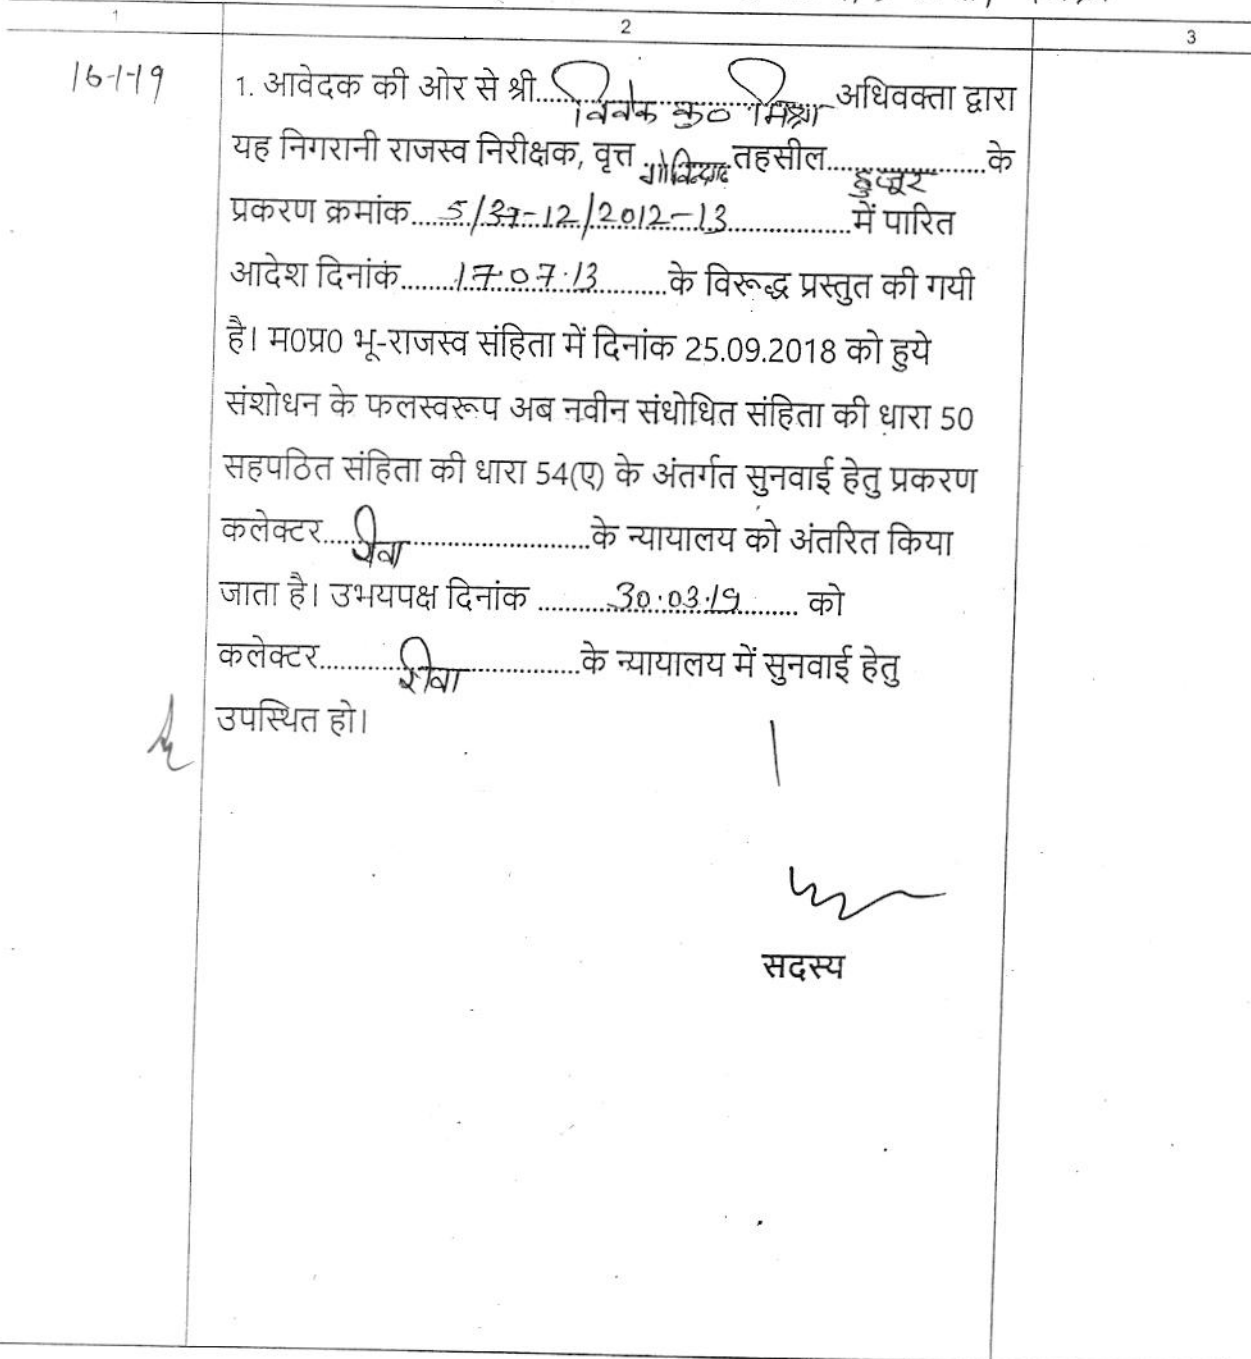 1 2 3
16-1-19
1. आवेदक की ओर से श्री.......विवेक कु० मिश्रा.......अधिवक्ता द्वारा
यह निगरानी राजस्व निरीक्षक, वृत्त ........तहसील.......हुजूर.......के
प्रकरण क्रमांक.....5/अ-12/2012-13..............में पारित
आदेश दिनांक.......17.07.13.......के विरूद्ध प्रस्तुत की गयी
है। म0प्र0 भू-राजस्व संहिता में दिनांक 25.09.2018 को हुये
संशोधन के फलस्वरूप अब नवीन संधोधित संहिता की धारा 50
सहपठित संहिता की धारा 54(ए) के अंतर्गत सुनवाई हेतु प्रकरण
कलेक्टर.....रीवा.......................के न्यायालय को अंतरित किया
जाता है। उभयपक्ष दिनांक ..........30.03.19.......... को
कलेक्टर...........रीवा................के न्यायालय में सुनवाई हेतु
उपस्थित हो।
सदस्य